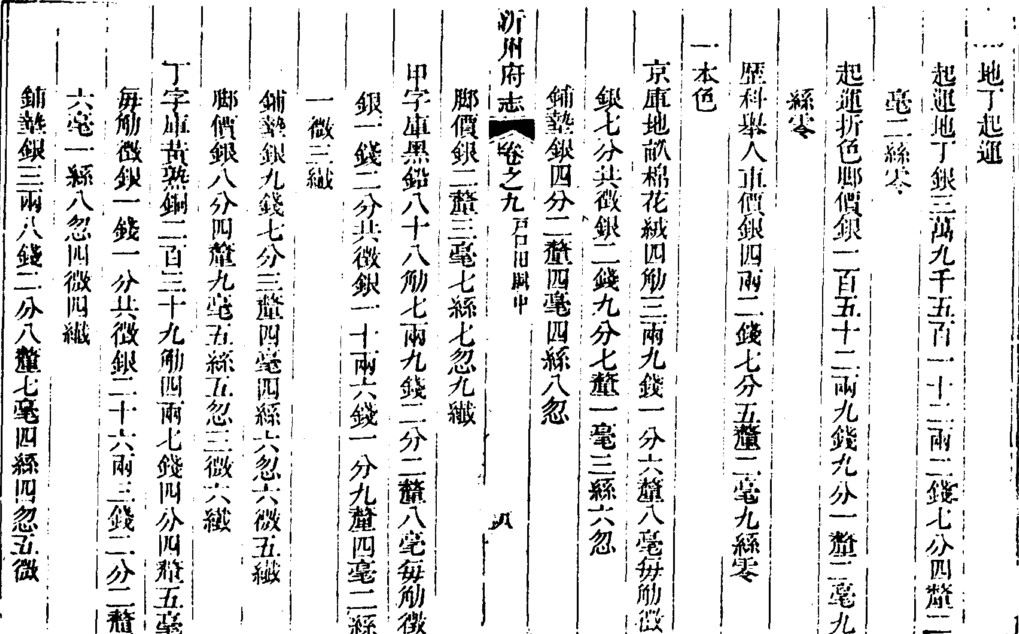 一地丁起運
起運地丁銀三萬九千五百一十二兩二錢七分四釐二
毫二絲零
起運折色腳價銀一百五十二兩九錢九分一釐二毫九
絲零
歷科舉人車價銀四兩二錢七分五釐二毫九絲零
一本色
京庫地畝棉花絨四觔三兩九錢一分六釐八毫每觔徵
銀七分共徵銀二錢九分七釐一毫三絲六忽
鋪墊銀四分二釐四毫四絲八忽
沂州府志 卷之九 戶口田賦中 八
腳價銀二釐三毫七絲七忽九纎
甲字庫黑鉛八十八觔七兩九錢二分二釐八毫每觔徵
銀一錢二分共徵銀一十兩六錢一分九釐四毫二絲
一微三纎
鋪墊銀九錢七分三釐四毫四絲六忽六微五纎
腳價銀八分四釐九毫五絲五忽三微六纎
丁字庫黃熟銅二百三十九觔四兩七錢四分四釐五毫
每觔徵銀一錢一分共徵銀二十六兩三錢二分二釐
六毫一絲八忽四微四纎
鋪墊銀三兩八錢二分八釐七毫四絲四忽五微